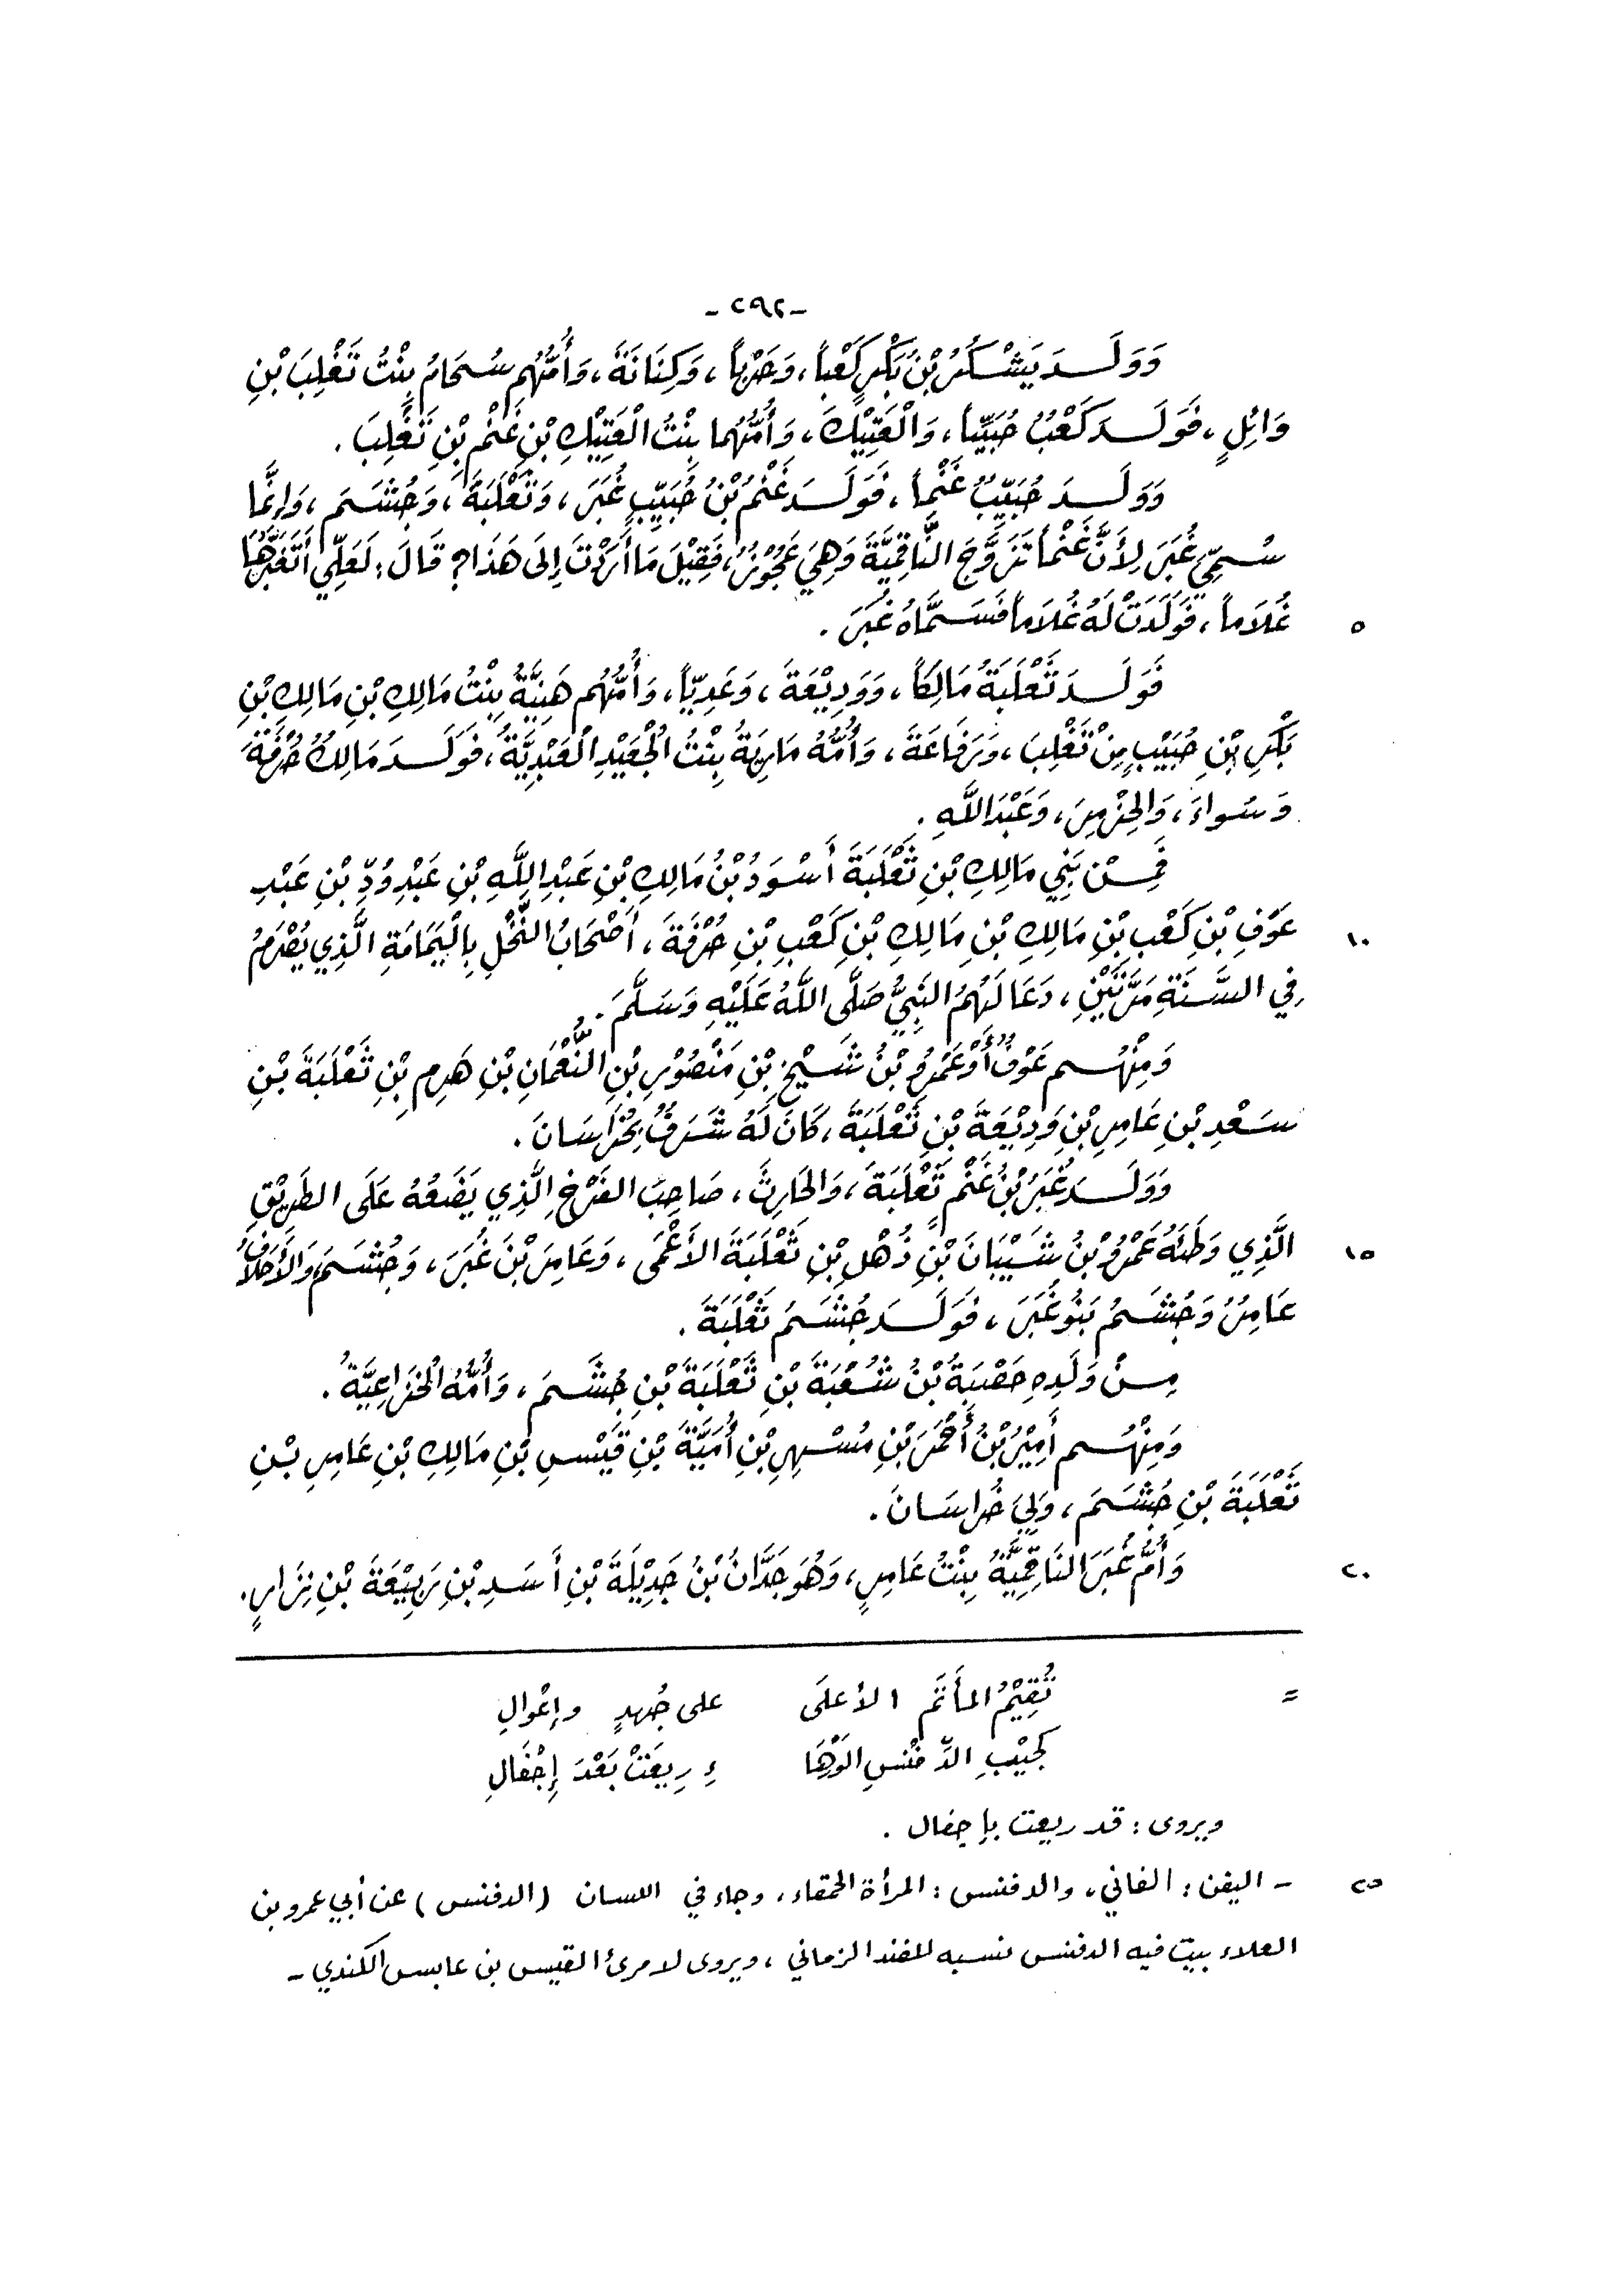 -٢٩٢-
وَوَلَــدَ يَشْــكُرُ بْنُ بَكْرٍ كَعْباً، وَحَرْباً، وَكِنَانَةَ، وَأُمُّهُم سُحَامُ بِنْتُ تَغْلِبَ بْنِ
وَائِلٍ، فَوَلَــدَ كَعْبُ حُبَيِّباً، وَالْعَتِيْكَ، وَأُمُّهُما بِنْتُ الْعَتِيْكِ بْنِ غَنْمِ بْنِ تَغْلِبَ.
وَوَلَــدَ حُبَيِّبُ غَنْماً، فَوَلَــدَ غَنْمُ بْنُ حُبَيِّبٍ غُبَرَ، وَثَعْلَبَةَ، وَجُشَــمَ، وَإِنَّما
سُــمِّيَ غُبَرَ لِأَنَّ غَنْماً تَزَوَّجَ النَّاقِمِيَّةَ وَهِيَ عَجُوْزٌ، فَقِيْلَ مَا أَرَدْتَ إِلَى هَذَا؟ قَالَ: لَعَلِّي أَتَغَبَّرُهَا
٥ غُلَاماً، فَوَلَدَتْ لَهُ غُلَاماً فَسَــمَّاهُ غُبَرَ.
فَوَلَــدَ ثَعْلَبَةُ مَالِكاً، وَوَدِيْعَةَ، وَعَدِيّاً، وَأُمُّهُم هَنِيَّةُ بِنْتُ مَالِكِ بْنِ مَالِكِ بْنِ
بَكْرِ بْنِ حُبَيْبٍ مِنْ تَغْلِبَ، وَرِفَاعَةَ، وَأُمُّهُ مَارِيَةُ بِنْتُ الْجُعَيْدِ الْعَبْدِيَّةُ، فَوَلَــدَ مَالِكُ حُرْفَةَ
وَسَواءَ، وَالحِزْمِرَ، وَعَبْدَ اللَّهِ.
فَمِــنْ بَنِي مَالِكِ بْنِ ثَعْلَبَةَ أَسْوَدُ بْنُ مَالِكِ بْنِ عَبْدِ اللَّهِ بْنِ عَبْدِ وُدِّ بْنِ عَبْدِ
١٠ عَوْفِ بْنِ كَعْبِ بْنِ مَالِكِ بْنِ مَالِكِ بْنِ كَعْبِ بْنِ حُرْفَةَ، أَصْحَابُ النَّخْلِ بِالْيَمَامَةِ الَّذِي يُصْرَمُ
فِي السَّــنَةِ مَرَّتَيْنِ، دَعَا لَهُمُ النَّبِيُّ صَلَّى اللَّهُ عَلَيْهِ وَسَلَّمَ.
وَمِنْهُــم عَوْفُ أَوْ عَمْرُو بْنُ شَــيْخِ بْنِ مَنْصُوْرِ بْنِ النُّعْمَانِ بْنِ هَرِمِ بْنِ ثَعْلَبَةَ بْنِ
سَــعْدِ بْنِ عَامِرِ بْنِ وَدِيْعَةَ بْنِ ثَعْلَبَةَ، كَانَ لَهُ شَــرَفٌ بِخُرَاسَانَ.
وَوَلَــدَ غُبَرُ بْنُ غَنْمٍ ثَعْلَبَةَ، وَالحَارِثَ، صَاحِبَ الفَرْخِ الَّذِي يَضَعُهُ عَلَى الطَرِيْقِ
١٥ الَّذِي وَطَئَهُ عَمْرُو بْنُ شَــيْبَانَ بْنِ ذُهْلِ بْنِ ثَعْلَبَةَ الأَعْمَى، وَعَامِرَ بْنَ غُبَرَ، وَجُشَــمَ وَالأَحْلَافُ
عَامِرُ وَجُشَــمُ بَنُو غُبَرَ، فَوَلَــدَ جُشَــمُ ثَعْلَبَةَ.
مِــنْ وَلَدِهِ حَصْبَةُ بْنُ شُعْبَةَ بْنِ ثَعْلَبَةَ بْنِ جُشَــمَ، وَأُمُّهُ الْخُزَاعِيَّةُ.
وَمِنْهُــم أَمِيْرُ بْنُ أَحْمَرَ بْنِ مُسْــهِرِ بْنِ أُمَيَّةَ بْنِ قَيْسِ بْنِ مَالِكِ بْنِ عَامِرِ بْنِ
ثَعْلَبَةَ بْنِ جُشَــمَ، وَلِيَ خُراسَانَ.
٢٠ وَأُمُّ غُبَرَ النَاقِمِيَّةُ بِنْتُ عَامِرٍ، وَهُوَ جَدَّانُ بْنُ جَدِيْلَةَ بْنِ أَسَــدِ بْنِ رَبِيْعَةَ بْنِ نِزَارٍ.
= تُقِيْمُ المأتَم الأعلَى على جُهدٍ وإعْوالِ
كجَيْبِ الدِّفنْسِ الوَرْهَا ءِ رِيعَتْ بَعْدَ إِجْفَالِ
ويروى: قد ريعت بإجفال.
٢٥ - اليفن: الفاني، والدفنس: المرأة الحمقاء، وجاء في اللسان (الدفنس) عن أبي عمرو بن
العلاء بيت فيه الدفنس نسبه للفند الزماني، ويروى لامرئ القيس بن عابس الكندي -